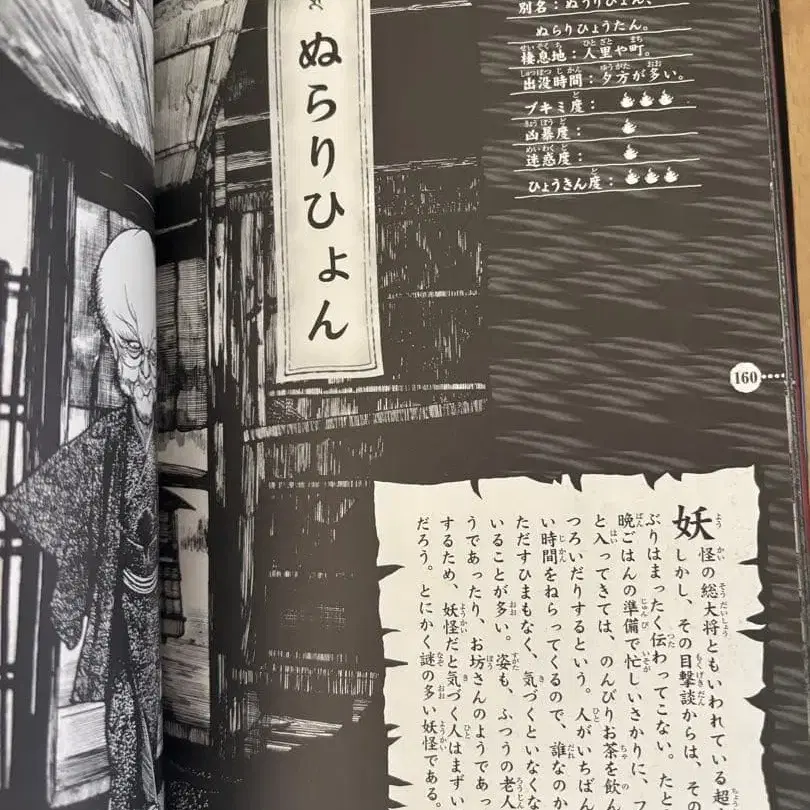 ぬらりひょん
別名：ぬうりひょん、
ぬらりひょうたん。
棲息地：人里や町。
出没時間：夕方が多い。
ブキミ度：
凶暴度：
迷惑度：
ひょうきん度：
160
妖怪の総大将ともいわれている超
しかし、その目撃談からは、その
ぶりはまったく伝わってこない。たと
晩ごはんの準備で忙しいさかりに、フ
と入ってきては、のんびりお茶を飲ん
つろいだりするという。人がいちばん
い時間をねらってくるので、誰なのか
ただすひまもなく、気づくといなくな
いることが多い。姿も、ふつうの老人
うであったり、お坊さんのようであっ
するため、妖怪だと気づく人はまずい
だろう。とにかく謎の多い妖怪である。